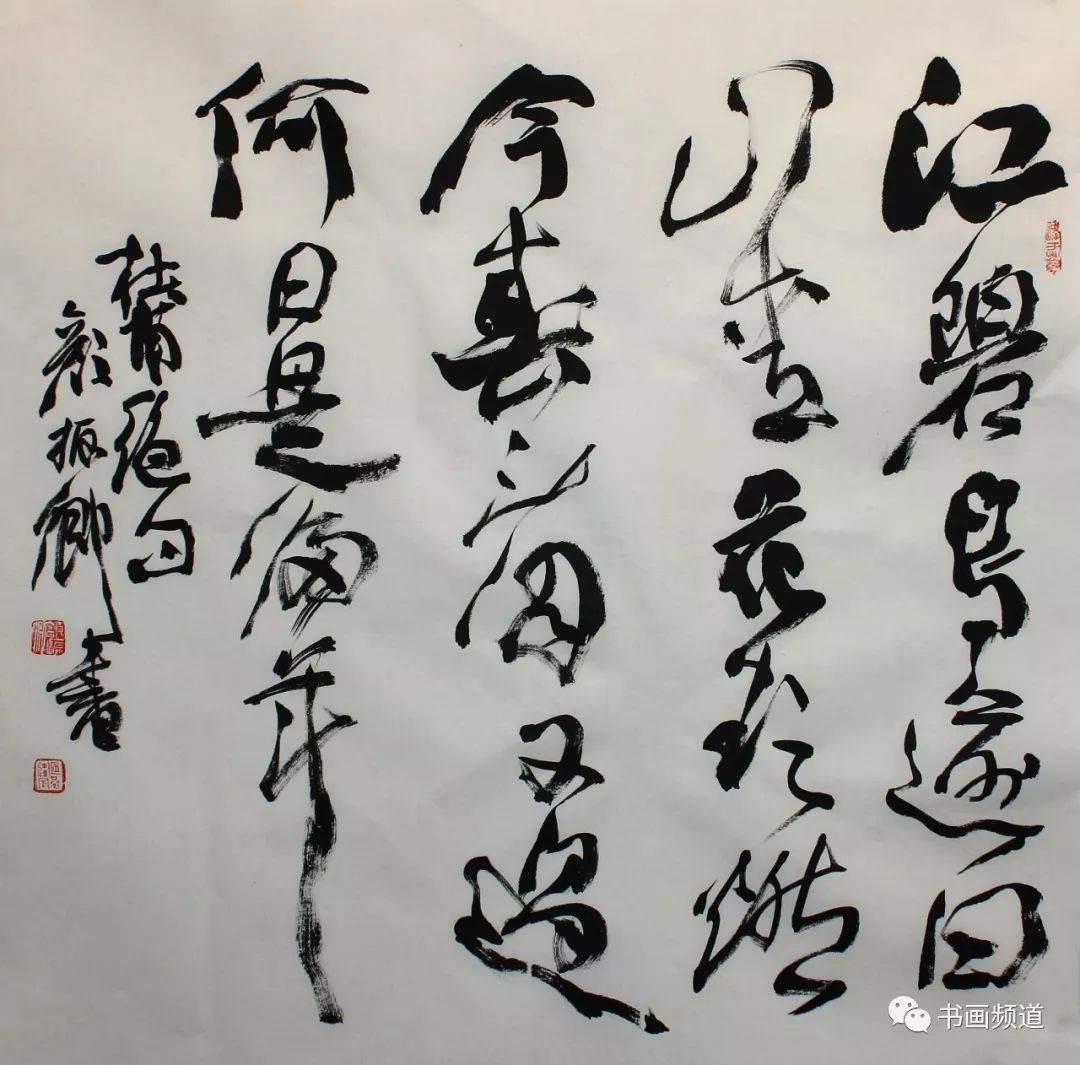 江碧鳥逾白
山青花欲燃
今春看又過
何日是歸年
杜甫絕句
顏振卿書
书画频道